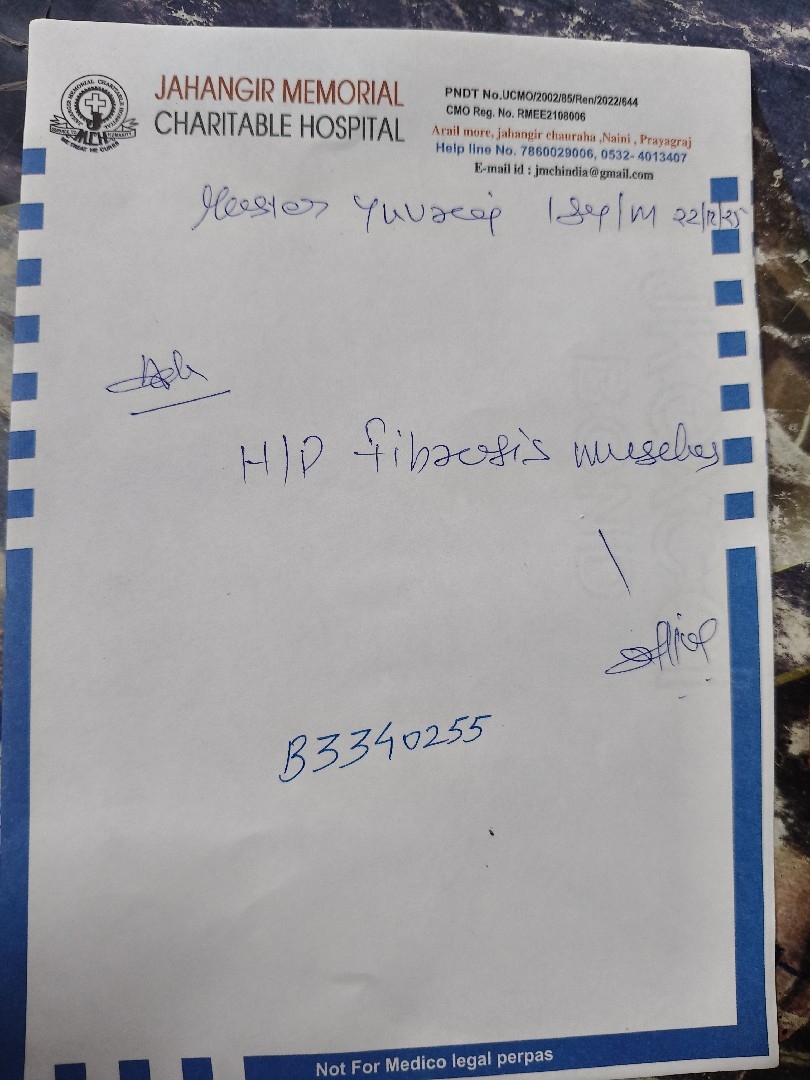 JAHANGIR MEMORIAL
CHARITABLE HOSPITAL
PNDT No.UCMO/2002/85/Ren/2022/644
CMO Reg. No. RMEE2108006
Arail more, jahangir chauraha ,Naini , Prayagraj
Help line No. 7860029006, 0532- 4013407
E-mail id : jmchindia@gmail.com
Master Yuvraj /M 22/12/25
H/P fibrosis muscles
B3340255
Not For Medico legal perpas